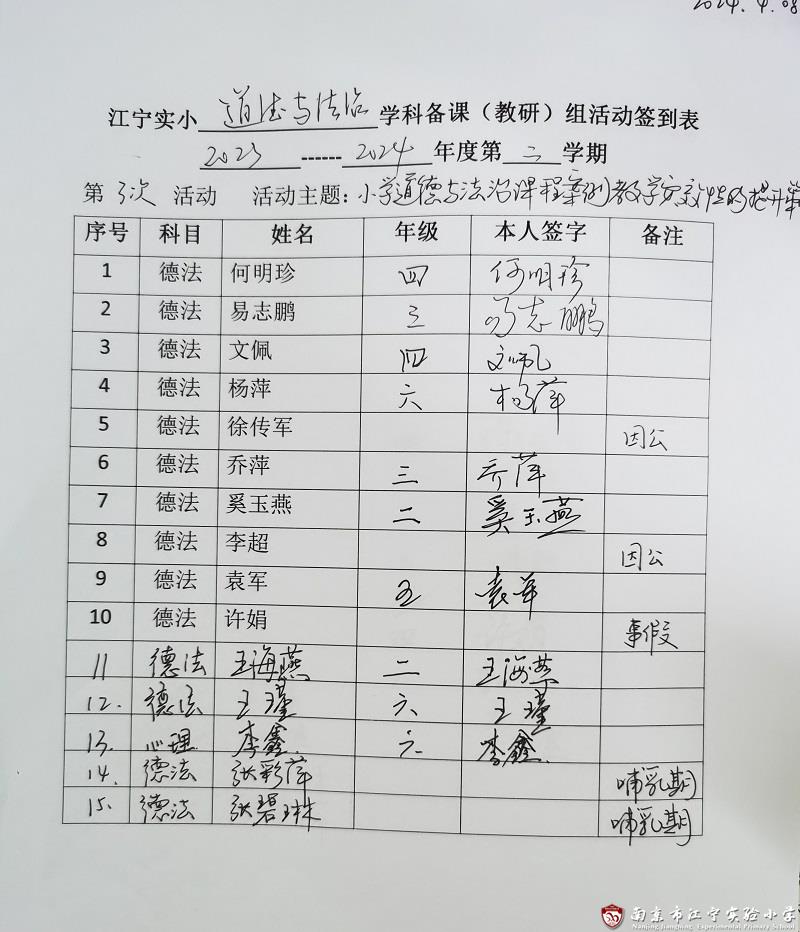 2024.4.08
江宁实小 道法与法治 学科备课（教研）组活动签到表
2023 ------ 2024 年度第 二 学期
第 3次 活动 活动主题：小学道德与法治课程案例教学实效性的提升策
序号 科目 姓名 年级 本人签字 备注
1 德法 何明珍 四 何明珍
2 德法 易志鹏 三 易志鹏
3 德法 文佩 四 文佩
4 德法 杨萍 六 杨萍
5 德法 徐传军 因公
6 德法 乔萍 三 乔萍
7 德法 奚玉燕 二 奚玉燕
8 德法 李超 因公
9 德法 袁军 五 袁军
10 德法 许娟 事假
11 德法 王海燕 二 王海燕
12. 德法 王瑾 六 王瑾
13. 心理 李鑫. 六. 李鑫.
14. 德法 张彩萍 哺乳期
15. 德法 张碧琳 哺乳期
南京市江宁实验小学
Nanjing Jiangning Experimental Primary School